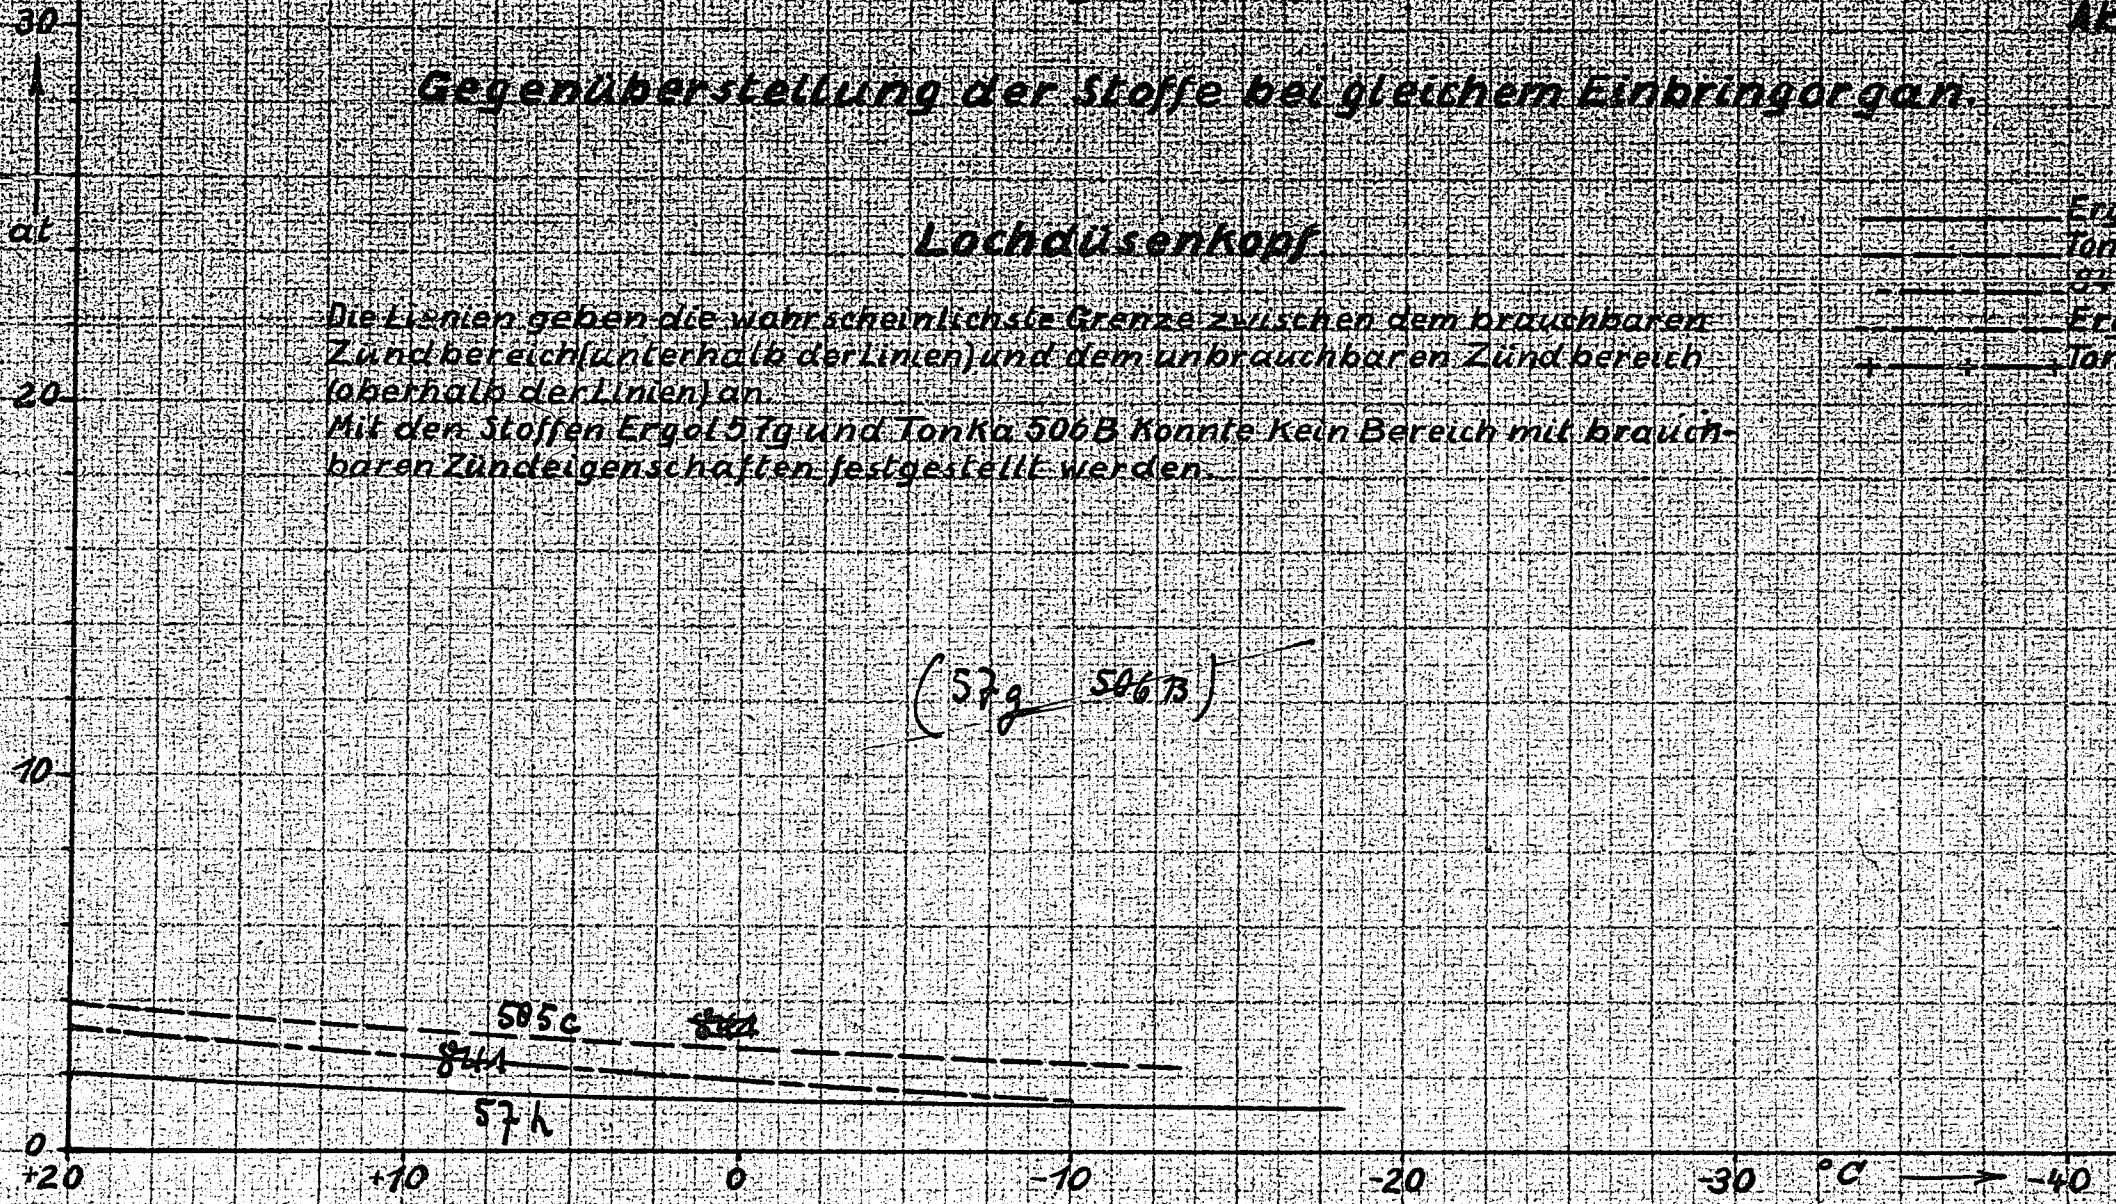 30
Gegenüberstellung der Stoffe bei gleichem Einbringorgan.
at
Lochdüsenkopf.
Die Linien geben die wahrscheinlichste Grenze zwischen dem brauchbaren
Zündbereich (unterhalb der Linien) und dem unbrauchbaren Zündbereich
(oberhalb der Linien) an.
20
Mit den Stoffen Ergol 57g und Tonka 506B Konnte Kein Bereich mit brauch-
baren Zündeigenschaften festgestellt werden.
(57g 506B)
10
505c
841
57h
0
+20 +10 0 -10 -20 -30 °C -40